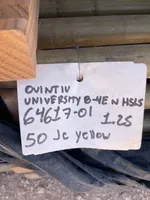 OVINTIV
UNIVERSITY B-4E N HSLS
64617-01 1.25
50 Jc yellow